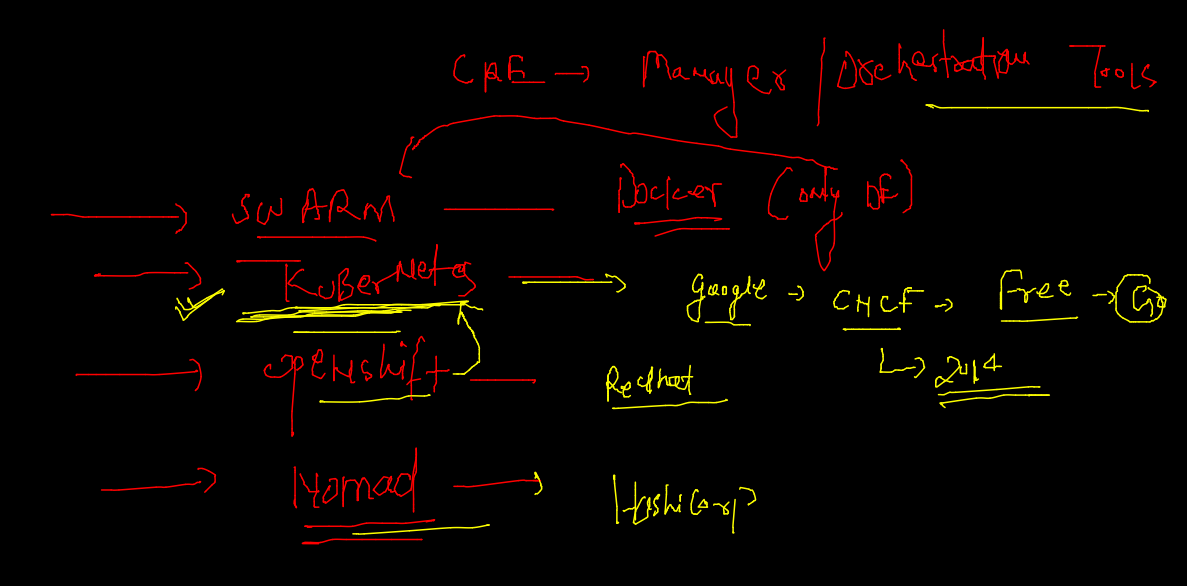 CRE → Manager / Orchestration Tools
→ SWARM — Docker (only DE)
→ KuBerNetes → Google → CNCF → Free → Go
↳ 2014
→ OPENshift — Redhat
→ Nomad → Hashicorp